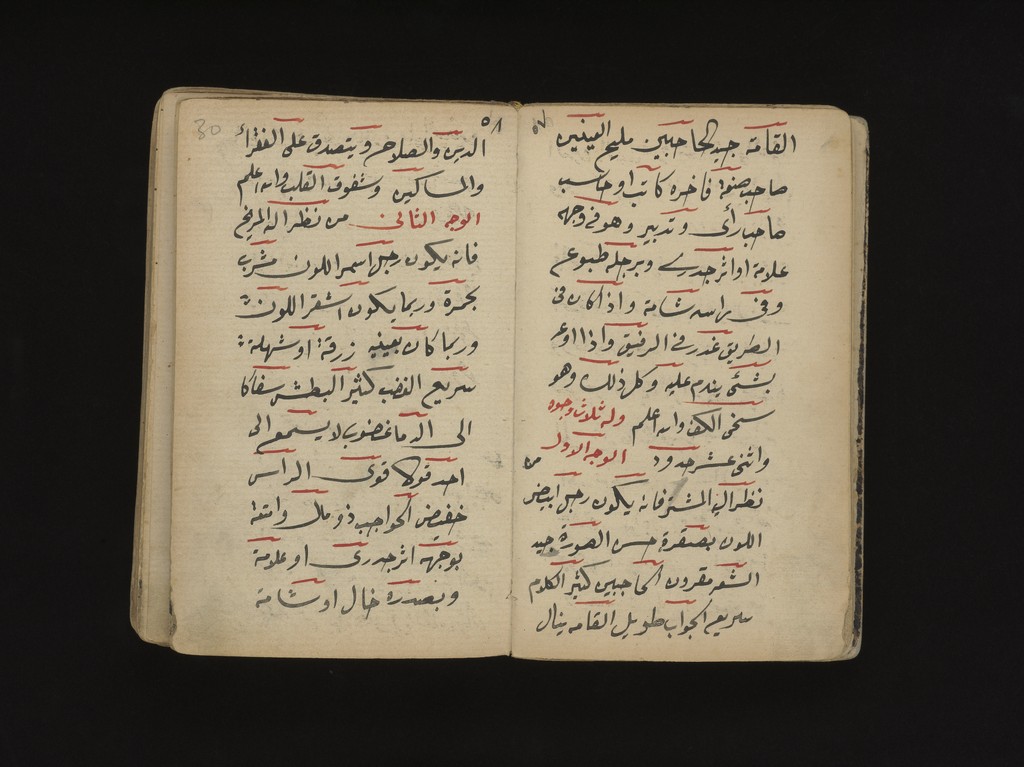 ٥٧
القامة جيد الحاجبين مليح العينين
صاحب صنعة فاخره كاتب او حاسب
صاحب رأى وتدبير وهو فى وجهه
علامة او اثر جدرى وبرجله طبوع
وفى راسه شامة واذا كان فى
الطريق غدر فى الرفيق واذا اوعد
بشئ يندم عليه وكل ذلك وهو
سخى الكف والله اعلم وله ثلاث وجوه
واثنى عشر حدود الوجه الاول من
نظر اليه المشترى فانه يكون رجل ابيض
اللون بصفرة حسن الصورة جيد
الشعر مقرون الحاجبين كثير الكلام
سريع الجواب طويل القامه ينال
٥٨
30
الدين والصلاح ويتصدق على الفقراء
والمساكين وشفوق القلب والله اعلم
الوجه الثانى من نظر اله المريخ
فانه يكون رجل اسمر اللون مشرب
بحمرة وربما يكون اشقر اللون
وربما كان بعينيه زرقة او شهلة
سريع الغضب كثير البطش سفاكا
الى الدما غضوب لا يسمع الى
احد قولا قوى الراس
خفيض الحواجب ذو مال وامتعة
بوجهه اثر جدرى او علامة
وبصدره خال او شامة